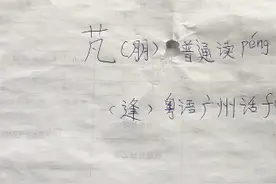 芃(朋)普通读péng
(逢)粤语广州话f